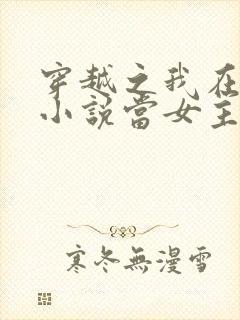 穿越之我在
小說當女主
寒冬無漫雪